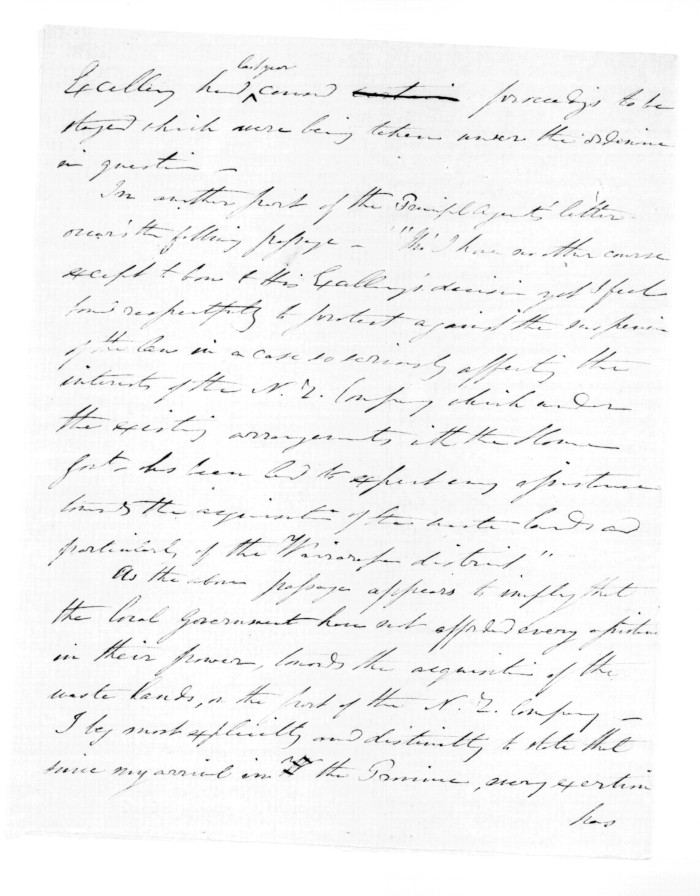 last year
Excellency had caused certain proceedings to be
stayed which were being taken under the ordinance
in question –
In another part of the Principal Agent's letter
occurs the following passage – "Tho' I have no other course
except to bow to His Excellency's decision yet I feel
bound respectfully to protest against the suspension
of the law in a case so seriously affecting the
interests of the N. Z. Company which under
the existing arrangements with the Home
Govt. has been led to expect every assistance
towards the acquisition of the waste lands and
particularly of the Wairarapa district"
As the above passage appears to imply that
the Local Government have not afforded every assistance
in their power, towards the acquisition of the
waste lands, on the part of the N. Z. Company –
I beg most explicitly and distinctly to state that
since my arrival in the Province, every exertion
has